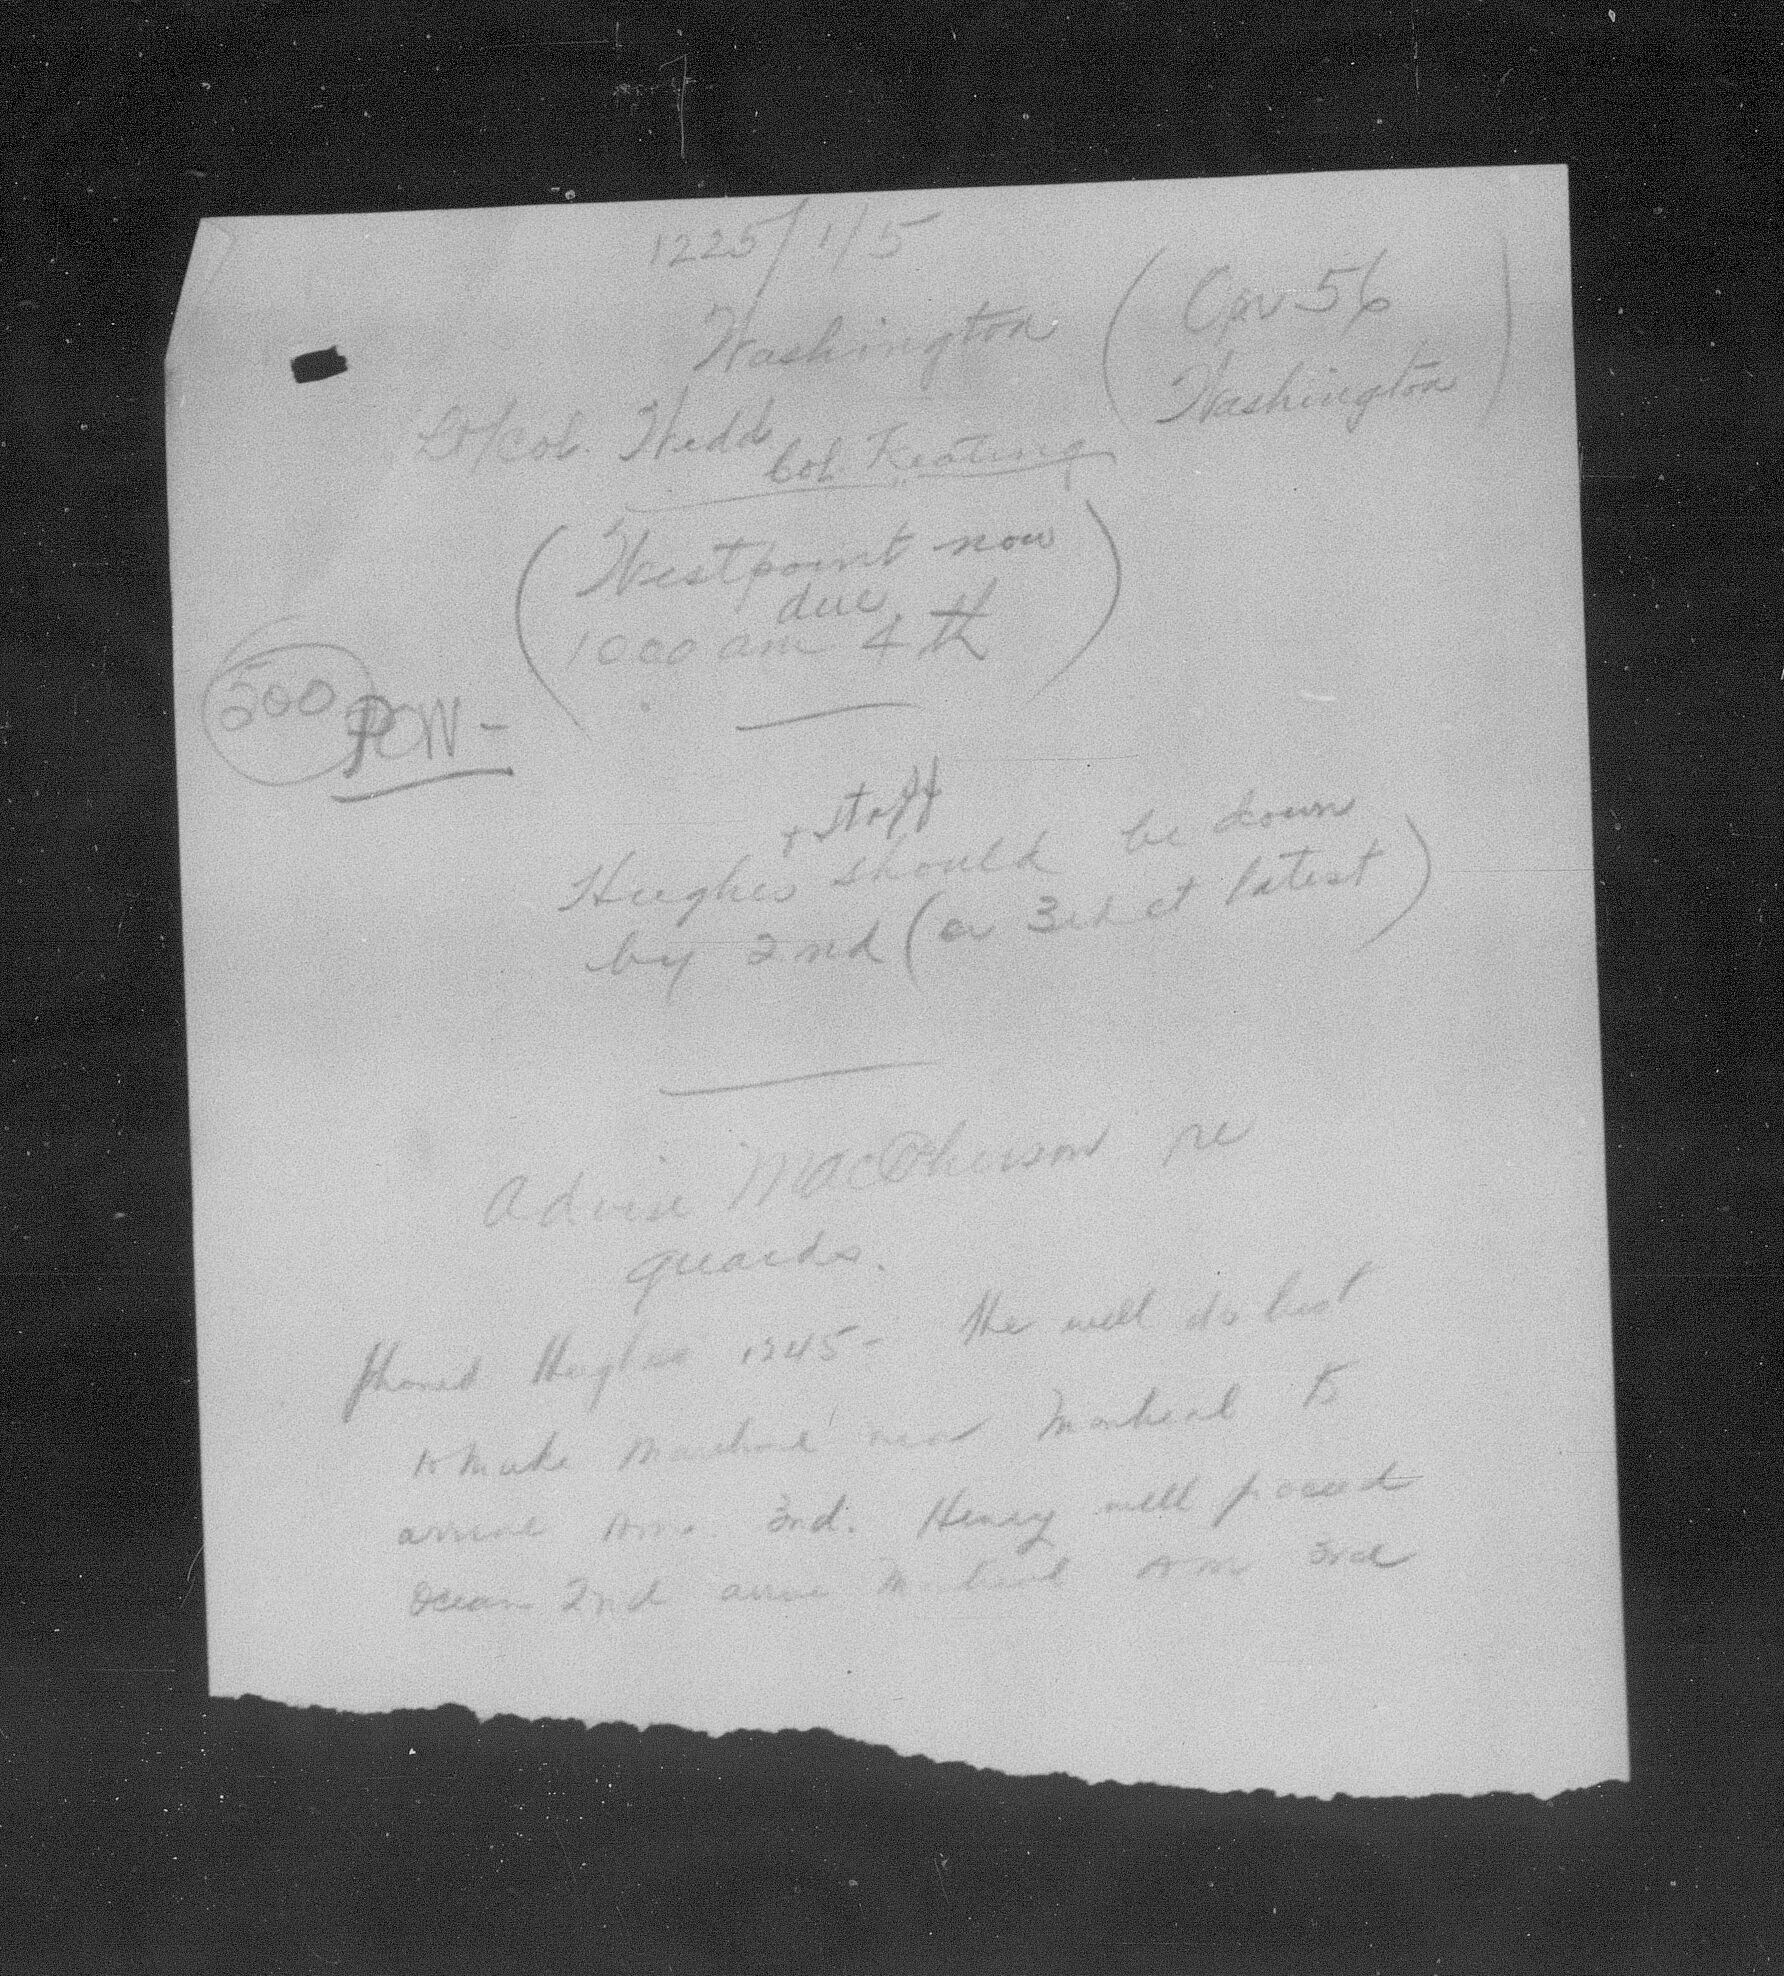 1225/1/5
Washington (Opr 56
Washington)
Lt/Col. Wedd
Col. Keating
(Westpoint now
due
1000 am 4th)
500 POW -
+ staff
Hughes should be down
by 2nd (or 3rd at latest)
Advise MacPherson re
guards.
Phoned Hughes 1245 - He will do best
to make Montreal to
arrive 3rd. Henry will proceed
Ocean 2nd arrive Montreal AM 3rd